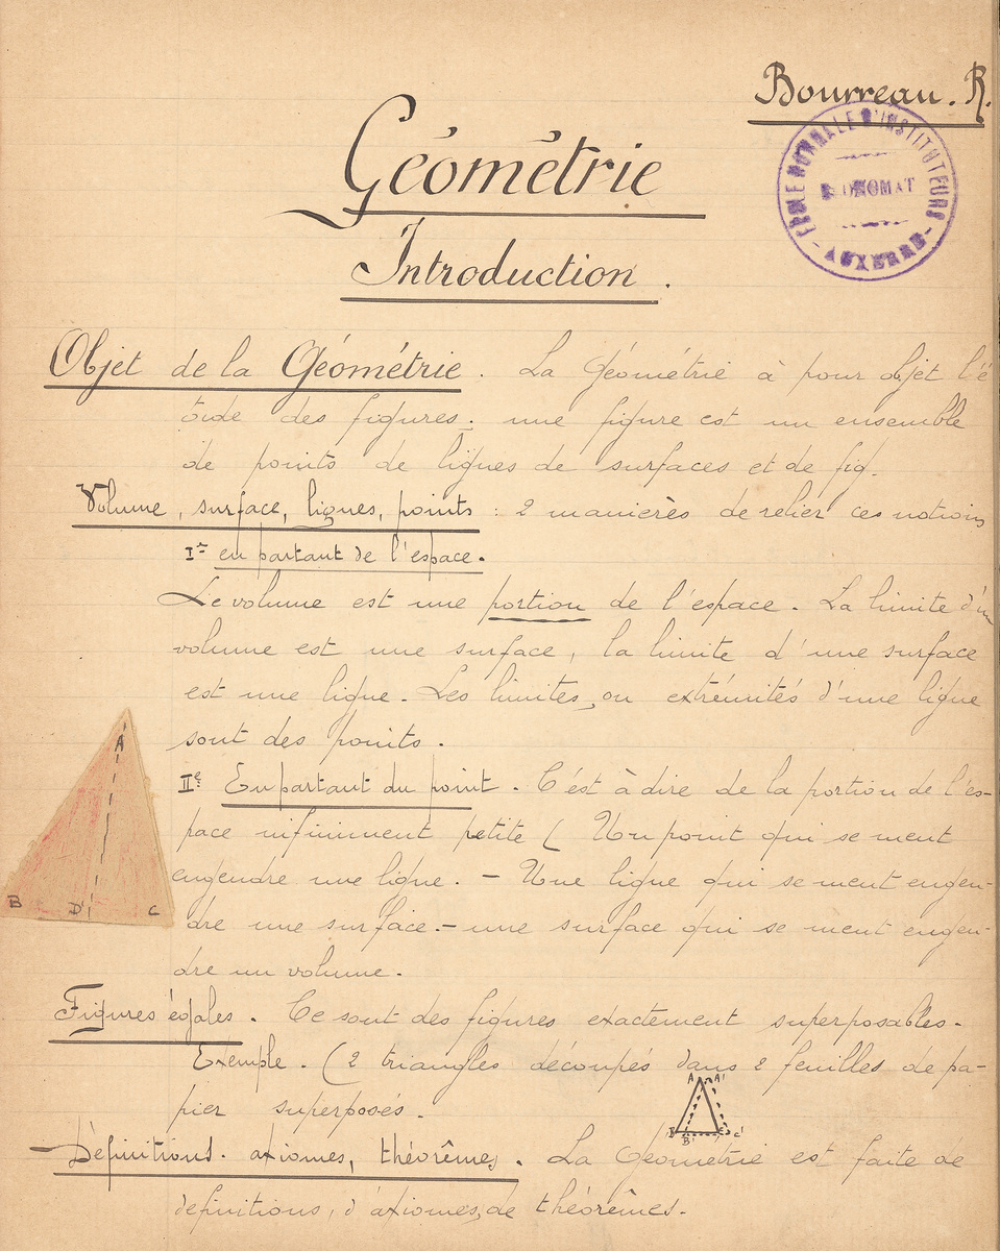 Bourreau. R.
ECOLE NORMALE D'INSTITUTEURS
ECONOMAT
- AUXERRE -
Géométrie
Introduction.
Objet de la Géométrie. La Géométrie à pour objet l'é
tude des figures. une figure est un ensemble
de points de lignes de surfaces et de fig.
Volume, surface, lignes, points : 2 manières de relier ces notions
Iº en partant de l'espace.
Le volume est une portion de l'espace. La limite d'un
volume est une surface, la limite d'une surface
est une ligne. Les limites, ou extrémités d'une ligne
sont des points.
IIº En partant du point. C'est à dire de la portion de l'es-
pace infiniment petite ( Un point qui se meut
engendre une ligne. - Une ligne qui se meut engen-
dre une surface. - une surface qui se meut engen-
dre un volume.
A
B D C
Figures égales. Ce sont des figures exactement superposables.
Exemple. (2 triangles découpés dans 2 feuilles de pa-
pier superposés.
A A'
B B' C C'
Définitions. axiomes, théorêmes. La Géométrie est faite de
définitions, d'axiomes, de théorêmes.